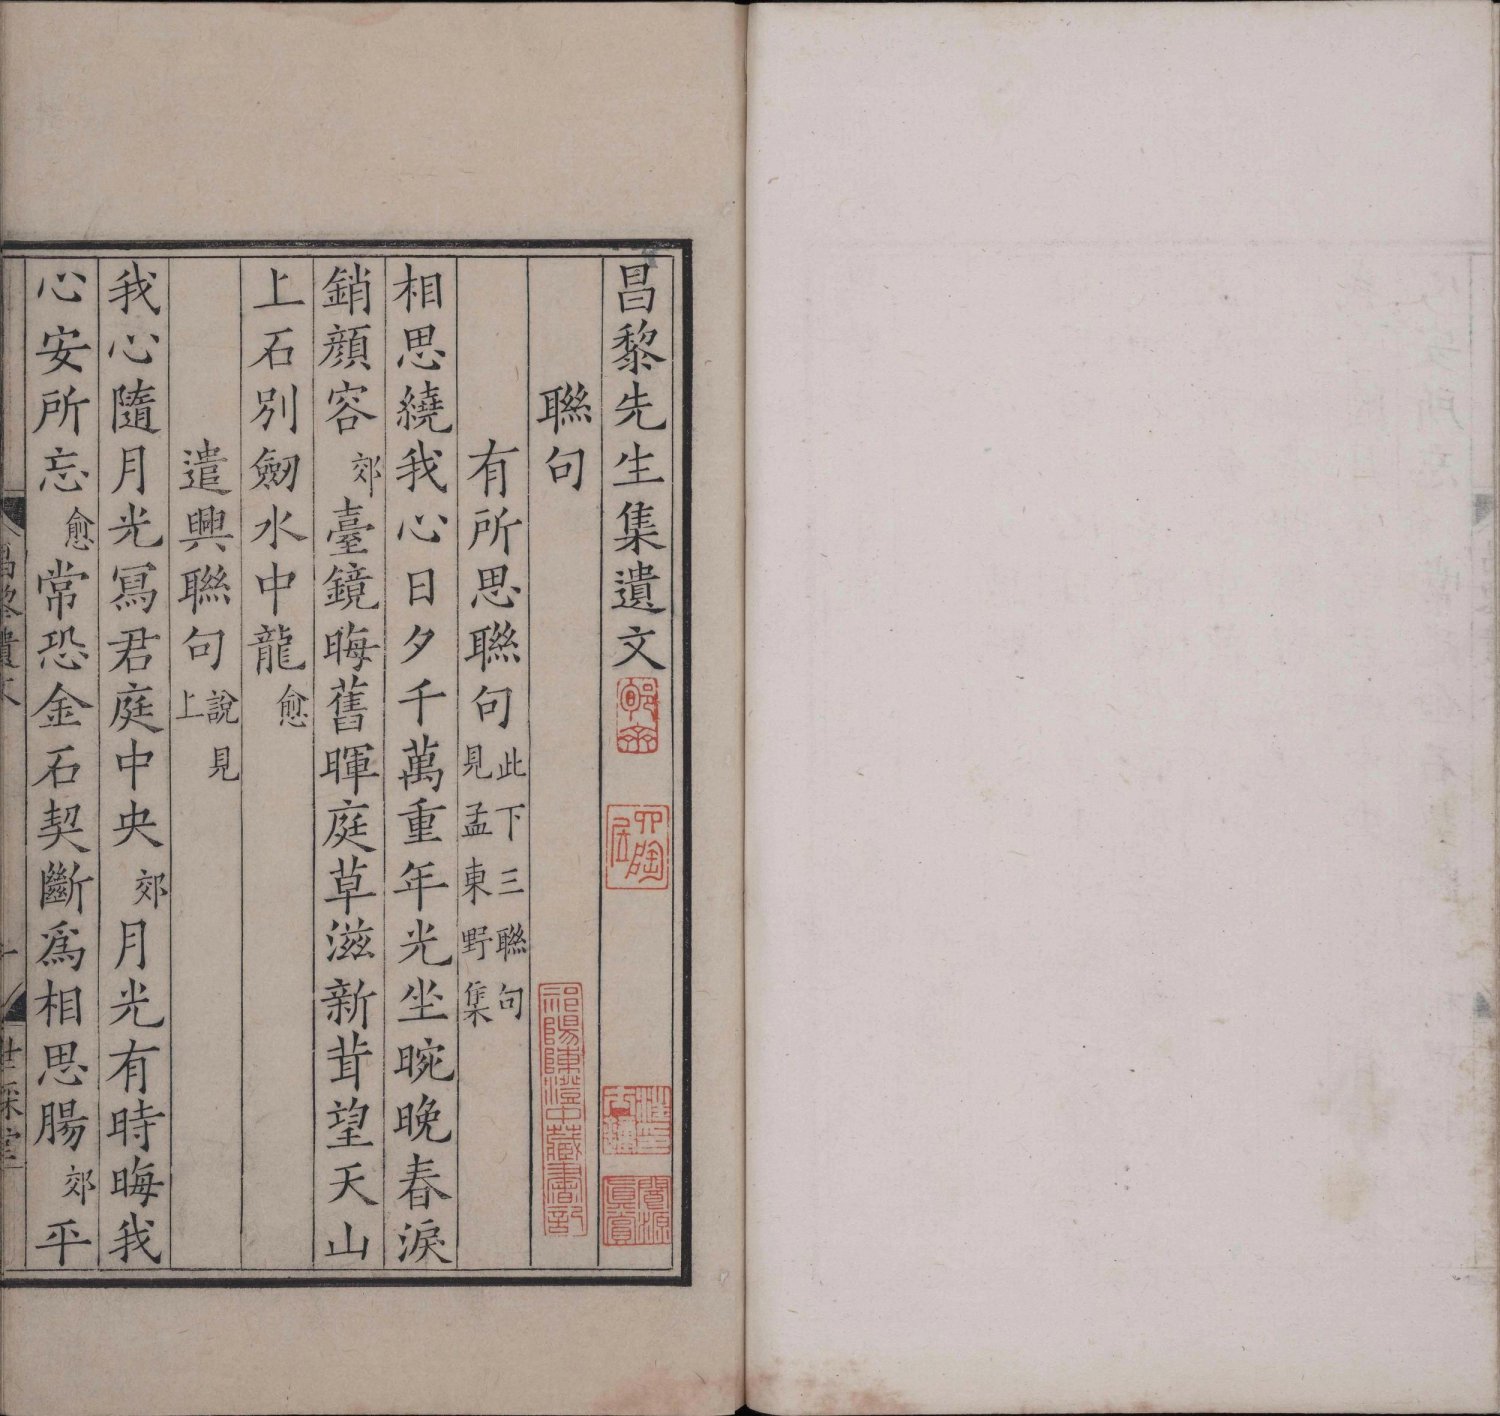 昌黎先生集遺文
聯句
有所思聯句此下三聯句見孟東野集
相思繞我心日夕千萬重年光坐晼晚春淚
銷顏容郊臺鏡晦舊暉庭草滋新茸望天山
上石別劒水中龍愈
遣興聯句說見上
我心隨月光冩君庭中央郊月光有時晦我
心安所忘愈常恐金石契斷爲相思腸郊平
昌黎遺文
世綵堂
祁陽陳澄中藏書記